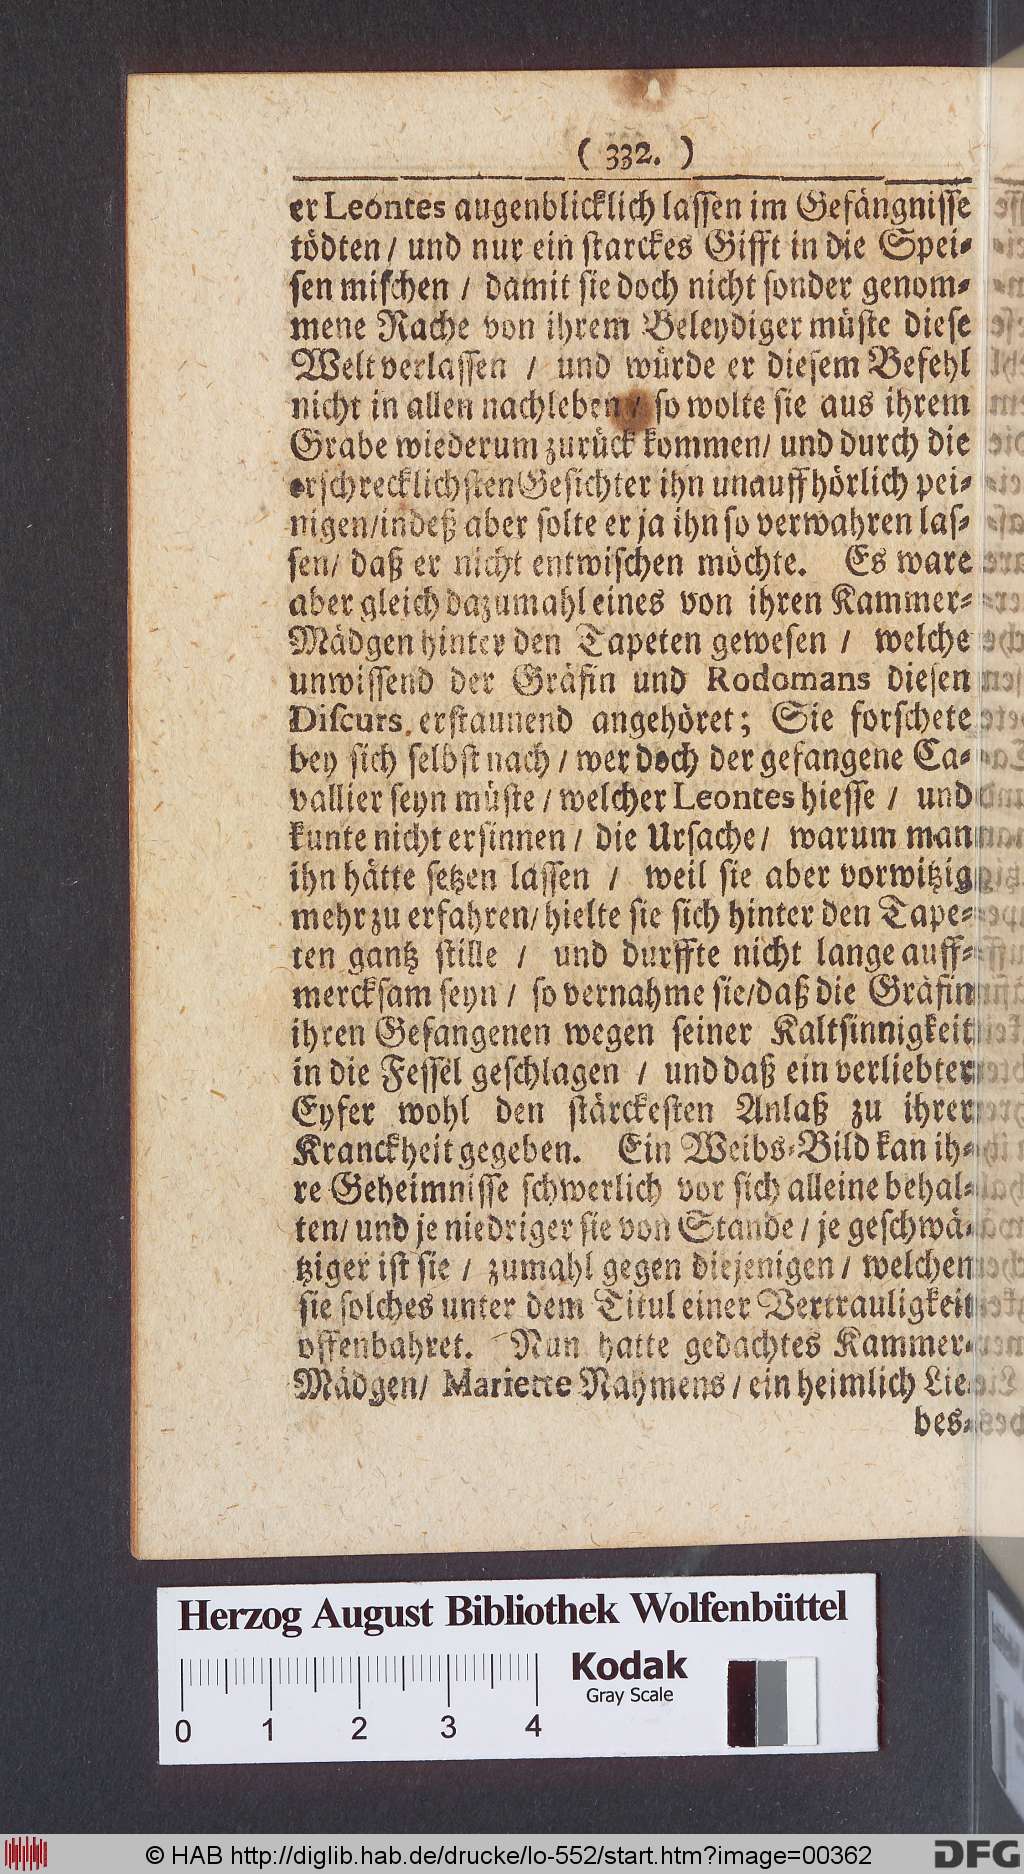 ( 332. )
er Leontes augenblicklich lassen im Gefängnisse
tödten / und nur ein starckes Gifft in die Spei-
sen mischen / damit sie doch nicht sonder genom-
mene Rache von ihrem Beleydiger müste diese
Welt verlassen / und würde er diesem Befehl
nicht in allen nachleben / so wolte sie aus ihrem
Grabe wiederum zurück kommen/ und durch die
erschrecklichsten Gesichter ihn unauffhörlich pei-
nigen/indeß aber solte er ja ihn so verwahren las-
sen/ daß er nicht entwischen möchte. Es ware
aber gleich dazumahl eines von ihren Kammer-
Mädgen hinter den Tapeten gewesen / welche
unwissend der Gräfin und Rodomans diesen
Discurs erstaunend angehöret; Sie forschete
bey sich selbst nach / wer doch der gefangene Ca-
vallier seyn müste / welcher Leontes hiesse / und
kunte nicht ersinnen / die Ursache / warum man
ihn hätte setzen lassen / weil sie aber vorwitzig
mehr zu erfahren/ hielte sie sich hinter den Tape-
ten gantz stille / und durffte nicht lange auff-
mercksam seyn / so vernahme sie/daß die Gräfin
ihren Gefangenen wegen seiner Kaltsinnigkeit
in die Fessel geschlagen / und daß ein verliebter
Eyfer wohl den stärckesten Anlaß zu ihrer
Kranckheit gegeben. Ein Weibs-Bild kan ih-
re Geheimnisse schwerlich vor sich alleine behal-
ten/ und je niedriger sie von Stande / je geschwä-
tziger ist sie / zumahl gegen diejenigen / welchen
sie solches unter dem Titul einer Vertrauligkeit
offenbahret. Nun hatte gedachtes Kammer-
Mädgen/ Mariette Nahmens / ein heimlich Lie-
bes-
Herzog August Bibliothek Wolfenbüttel
Kodak
Gray Scale
0 1 2 3 4
© HAB http://diglib.hab.de/drucke/lo-552/start.htm?image=00362
DFG